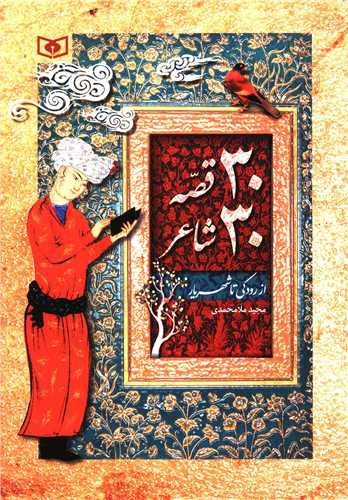 ۳۰ قصّه
۳۰ شاعر
از رودکی تا شهریار
مجید ملامحمدی